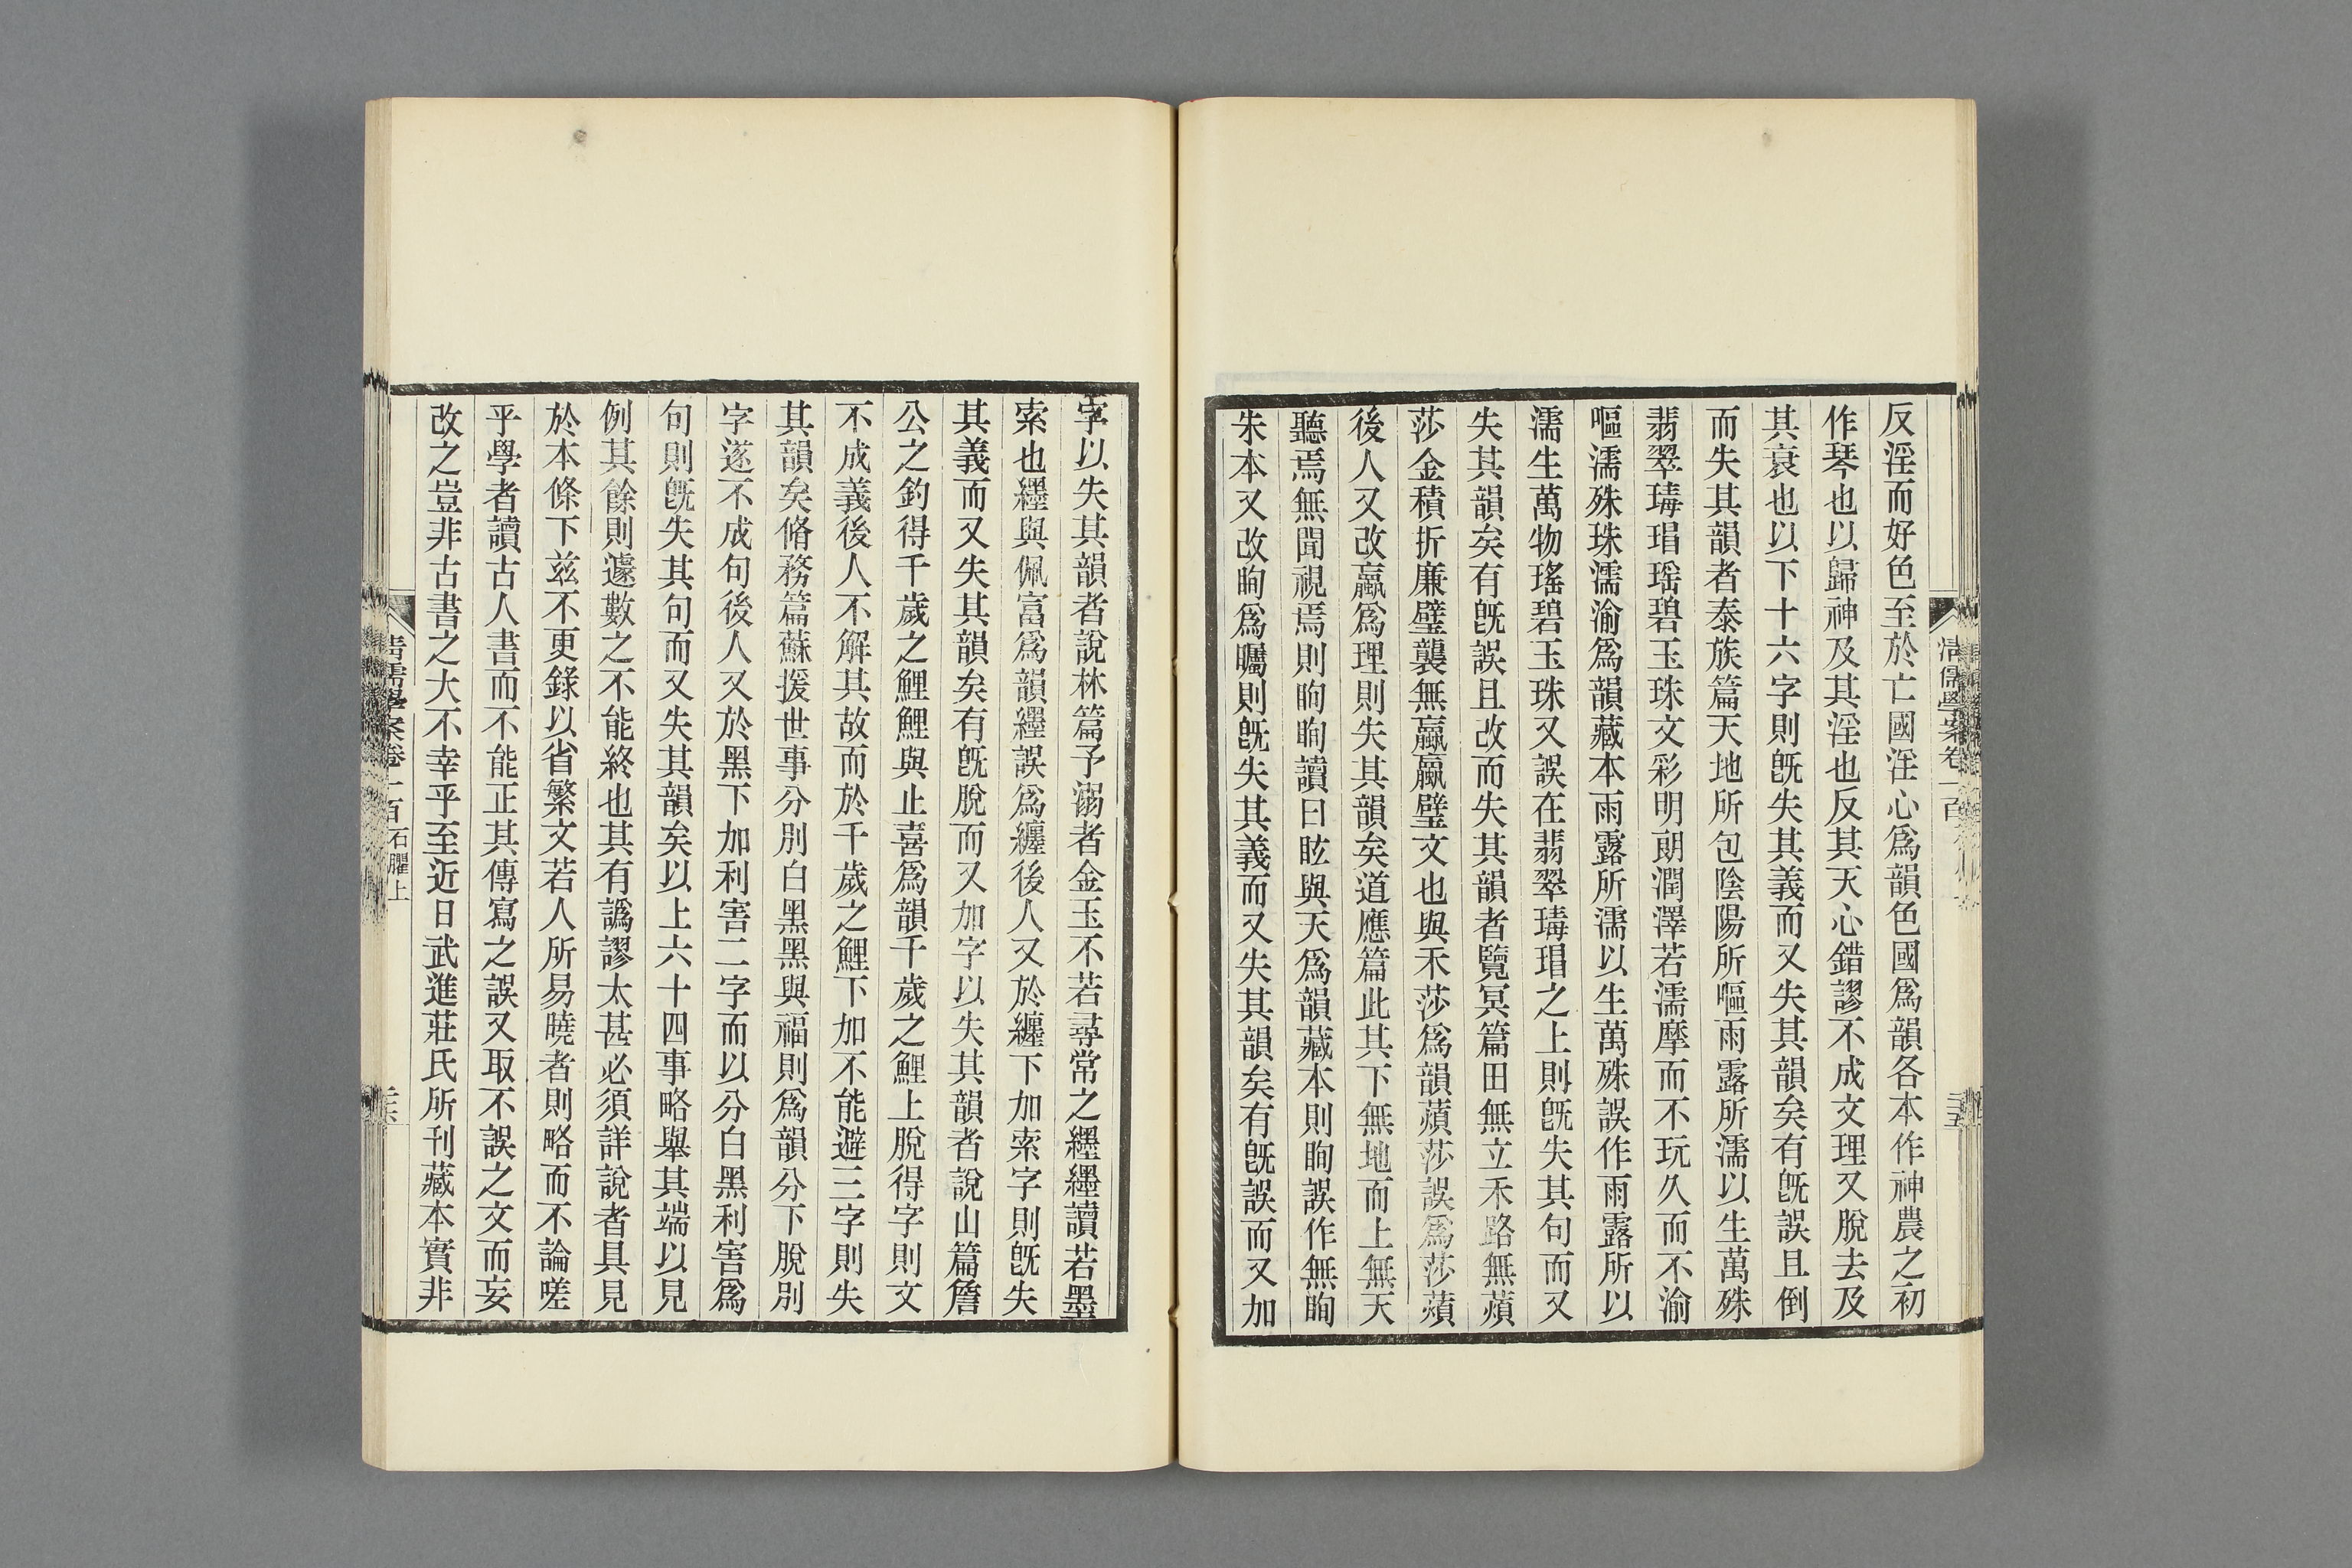 清儒學案卷一百
二五
反淫而好色至於亡國淫心爲韻色國爲韻各本作神農之初
作琴也以歸神及其淫也反其天心錯謬不成文理又脫去及
其衰也以下十六字則既失其義而又失其韻矣有既誤且倒
而失其韻者泰族篇天地所包陰陽所嘔雨露所濡以生萬殊
翡翠瑇瑁瑶碧玉珠文彩明朗潤澤若濡摩而不玩久而不渝
嘔濡殊珠濡渝爲韻藏本雨露所濡以生萬殊誤作雨露所以
濡生萬物瑤碧玉珠又誤在翡翠瑇瑁之上則既失其句而又
失其韻矣有既誤且改而失其韻者覽冥篇田無立禾路無薠
莎金積折廉璧襲無蠃蠃璧文也與禾莎爲韻薠莎誤爲莎薠
後人又改蠃爲理則失其韻矣道應篇此其下無地而上無天
聽焉無聞視焉則眴眴讀曰眩與天爲韻藏本則眴誤作無眴
朱本又改眴爲矚則既失其義而又失其韻矣有既誤而又加
字以失其韻者說林篇予溺者金玉不若尋常之纆纆讀若墨
索也纆與佩富爲韻纆誤爲纏後人又於纏下加索字則既失
其義而又失其韻矣有既脫而又加字以失其韻者說山篇詹
公之釣得千歲之鯉鯉與止喜爲韻千歲之鯉上脫得字則文
不成義後人不解其故而於千歲之鯉下加不能避三字則失
其韻矣脩務篇蘇援世事分別白黑黑與福則爲韻分下脫別
字遂不成句後人又於黑下加利害二字而以分白黑利害爲
句則既失其句而又失其韻矣以上六十四事略舉其端以見
例其餘則遽數之不能終也其有譌謬太甚必須詳說者具見
於本條下茲不更錄以省繁文若人所易曉者則略而不論嗟
乎學者讀古人書而不能正其傳寫之誤又取不誤之文而妄
改之豈非古書之大不幸乎至近日武進莊氏所刊藏本實非
清儒學案卷一百 石臞上
二六